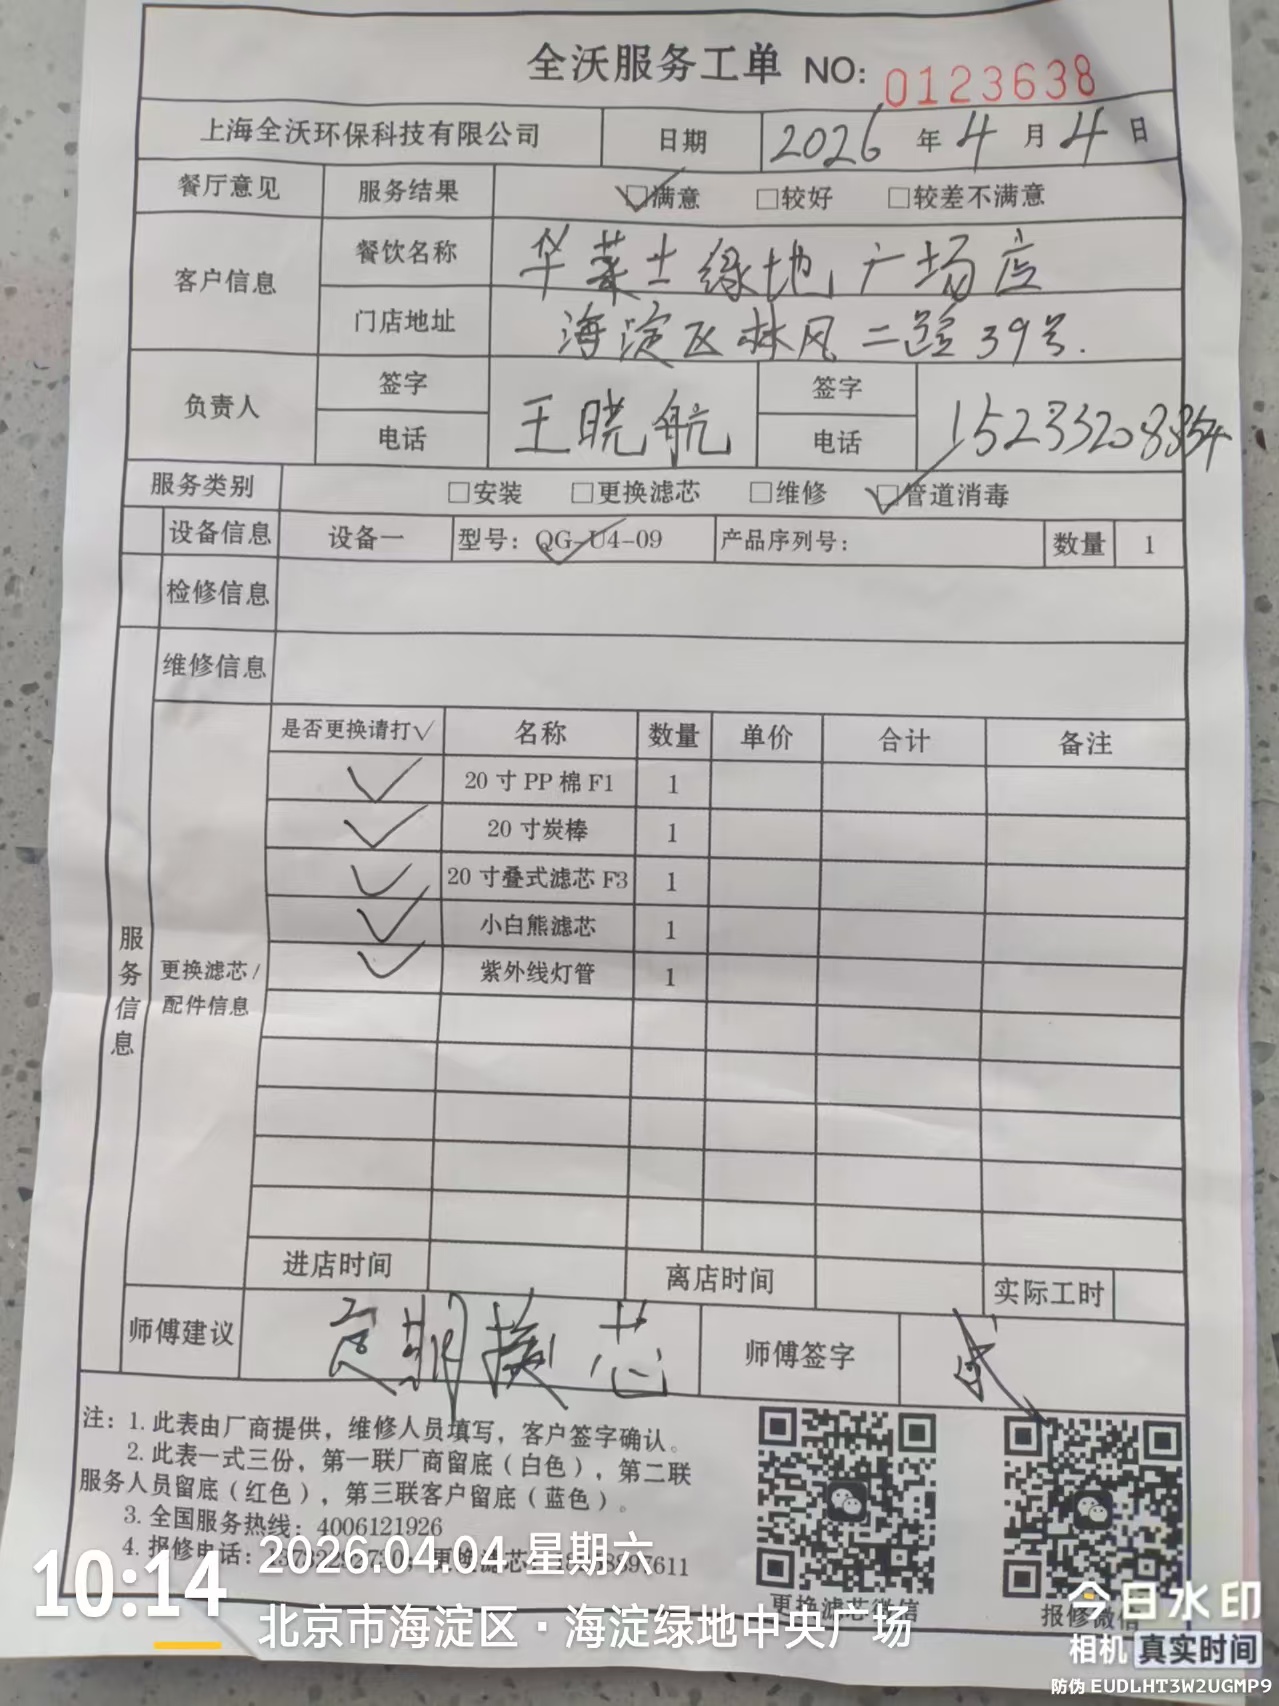 全沃服务工单 NO: 0123638
上海全沃环保科技有限公司 日期 2026 年 4 月 4 日
餐厅意见 服务结果 ☑满意 □较好 □较差不满意
客户信息 餐饮名称 华莱士绿地广场店
门店地址 海淀区林风二路39号.
负责人 签字 王晓航 签字
电话 电话 15233208354
服务类别 □安装 □更换滤芯 □维修 ☑管道消毒
设备信息 设备一 型号: QG-U4-09 产品序列号: 数量 1
检修信息
维修信息
是否更换请打√ 名称 数量 单价 合计 备注
✓ 20寸PP棉F1 1
✓ 20寸炭棒 1
✓ 20寸叠式滤芯F3 1
✓ 小白熊滤芯 1
✓ 紫外线灯管 1
服务信息
更换滤芯/
配件信息
进店时间 离店时间 实际工时
师傅建议 定期换芯 师傅签字
注: 1. 此表由厂商提供，维修人员填写，客户签字确认。
2. 此表一式三份，第一联厂商留底（白色），第二联
服务人员留底（红色），第三联客户留底（蓝色）。
3. 全国服务热线: 4006121926
4. 报修电话: 更换滤芯
更换滤芯微信 报修微信
10:14
2026.04.04 星期六
北京市海淀区·海淀绿地中央广场
今日水印
相机 真实时间
防伪 EUDLHT3W2UGMP9